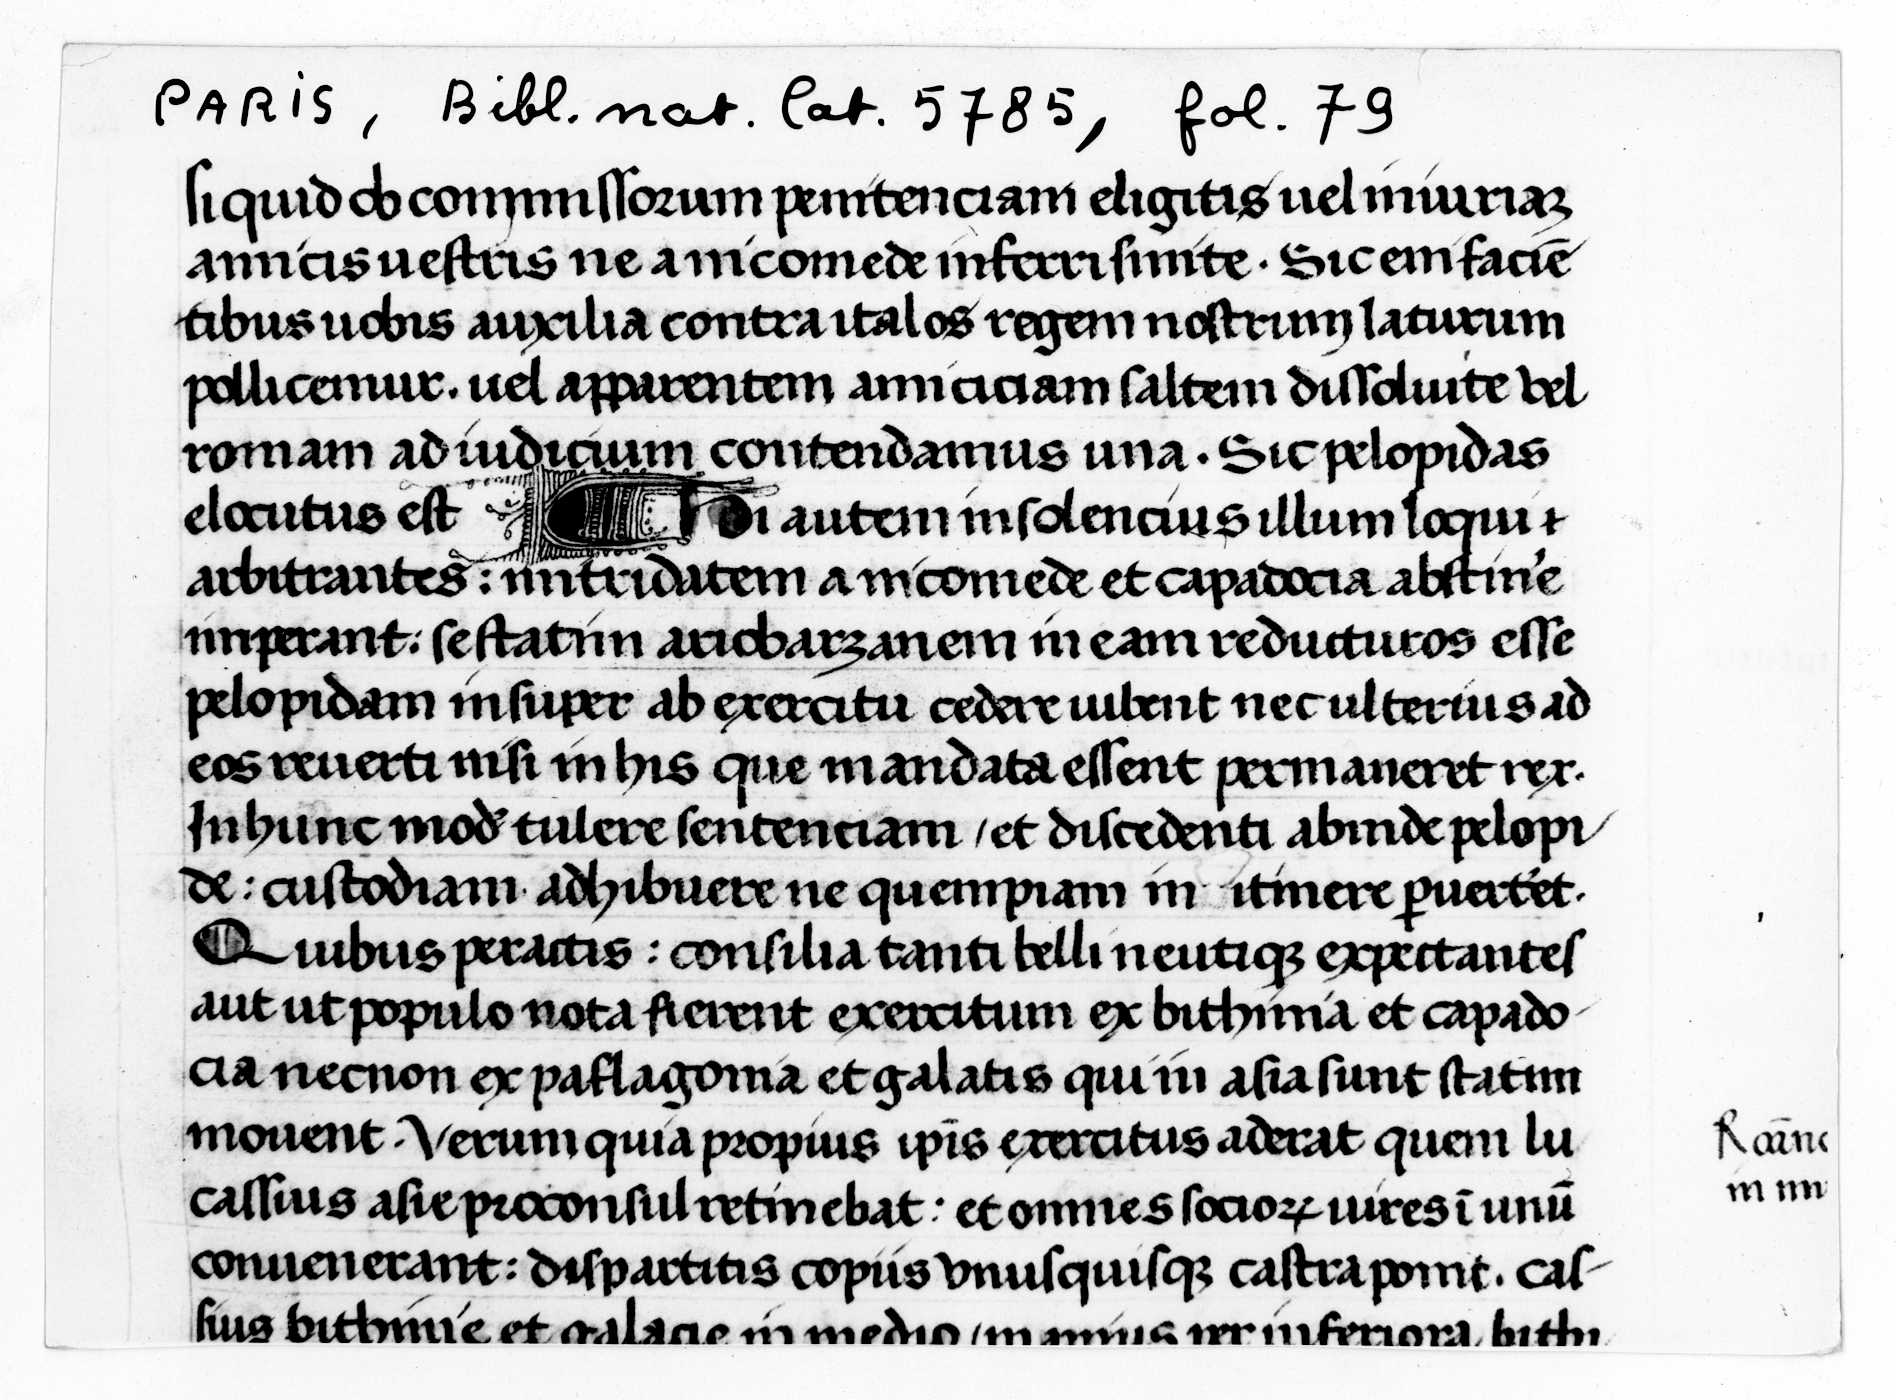 PARIS, Bibl. nat. lat. 5785, fol. 79
si quid ob commissorum penitenciam eligitis uel iniuriaȝ
amicis uestris ne a nicomede inferri sinite. Sic eni faciē
tibus uobis auxilia contra italos regem nostrum laturum
pollicemur. uel apparentem amiciciam saltem dissoluite vel
romam ad iudicium contendamus una. Sic pelopidas
elocutus est di autem insolencius illum loqui
arbitrantes: mitridatem a nicomede et capadocia abstin'e
imperant: se statim ariobarzanem in eam reducturos esse
pelopidam insuper ab exercitu cedere iubent nec ulterius ad
eos reuerti nisi in his que mandata essent permaneret rex.
In hunc mod' tulere sentenciam / et discedenti abinde pelopi
de: custodiam adhibuere ne quempiam in itinere ꝑuert'et.
Quibus peractis: consilia tanti belli neutiqꝫ expectantes
aut ut populo nota fierent exercitum ex bithinia et capado
cia necnon ex paflagonia et galatis qui in asia sunt statim
mouent. Verum quia propius ip̄is exercitus aderat quem lu
cassius asie proconsul retinebat: et omnes socioꝝ uires ī unū
conuenerant: dispartitis copiis vnusquisqꝫ castra ponit. Cas
sius bithinie et galacie in medio / manius per inferiora bithi